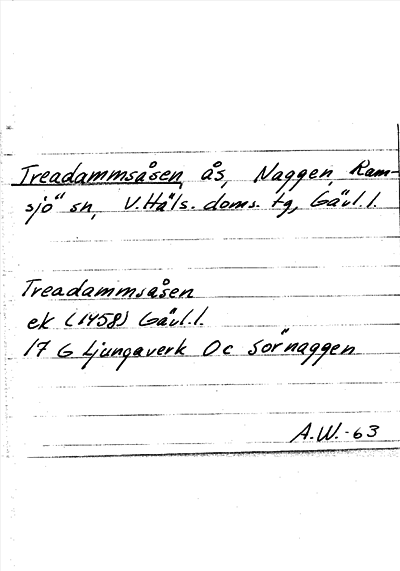 Treadammsåsen, ås, Naggen, Ram-
sjö sn, V. Häls. doms. tg, Gävl. l.
Treadammsåsen
ek (1458) Gävl. l.
17 G Ljungaverk 0c Sörnaggen
A.W. -63